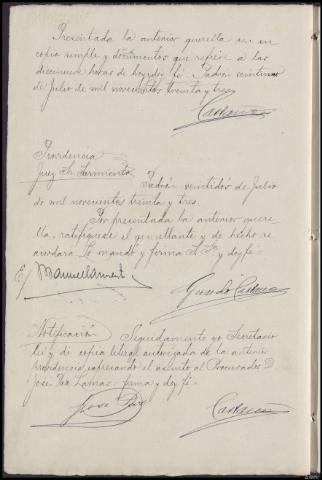 Presentada la anterior querella con su
copia simple y documentos que refiere a las
diecinueve horas de hoy doy fé. Padrón veintiuno
de Julio de mil novecientos treinta y tres
Castaño
Providencia
Juez Sr. Sarmiento
Padrón veintidós de Julio
de mil novecientos treinta y tres.
Por presentada la anterior quere
lla, ratifíquese el querellante y de hecho se
acordará. Lo mandó y firma S. Sª. y doy fé.
E/ Manuel Sarmiento
Gerardo Castaño
Notificación
Seguidamente yo Secretario
leí y dí copia literal autorizada de la anterior
providencia expresando el asunto al Procurador D.
José Paz Lamas: firma y doy fé.
José Paz
Castaño